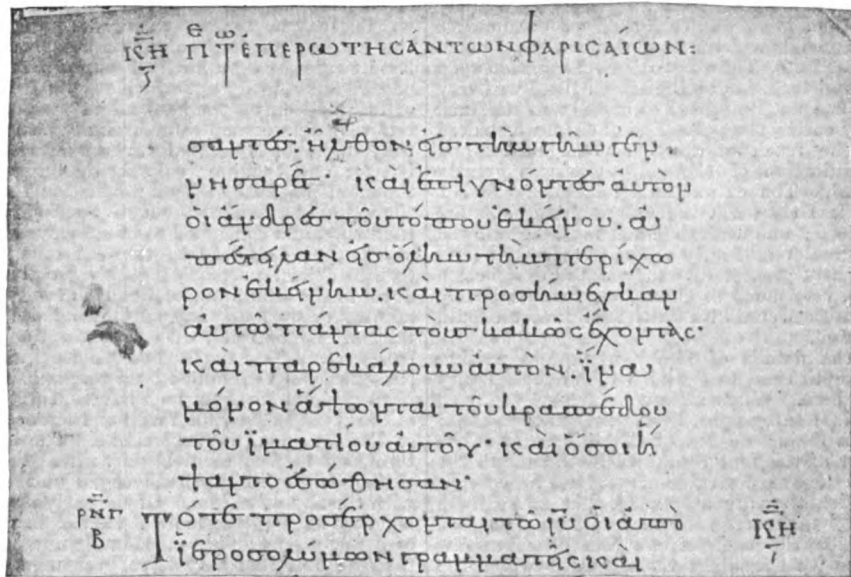 Πε Τω ἐπερωτησάντων φαρισαίων:
σαντες. ἦλθον εἰς τὴν γῆν γεν
νησαρέτ· καὶ ἐπιγνόντες αὐτὸν
οἱ ἄνδρες τοῦ τόπου ἐκείνου. ἀ
πέστειλαν εἰς ὅλην τὴν περίχω
ρον ἐκείνην. καὶ προσήνεγκαν
αὐτῶ πάντας τοὺς κακῶς ἔχοντας·
καὶ παρεκάλουν αὐτὸν. ἵνα
μόνον ἅψωνται τοῦ κρασπέδου
τοῦ ϊματίου αὐτοῦ· καὶ ὅσοι ἥ
ψαντο ἐσώθησαν·
ΡΝΓ
Β
Τότε προσέρχονται τῶ ἰῦ οἱ ἀπὸ
ϊεροσολύμων γραμματεῖς καὶ